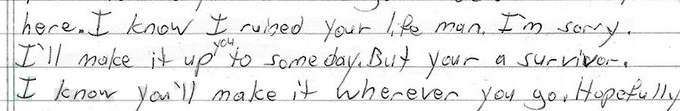 here. I know I ruined your life man. I'm sorry.
I'll make it up you to someday. But your a survivor.
I know you'll make it wherever you go. Hopefully